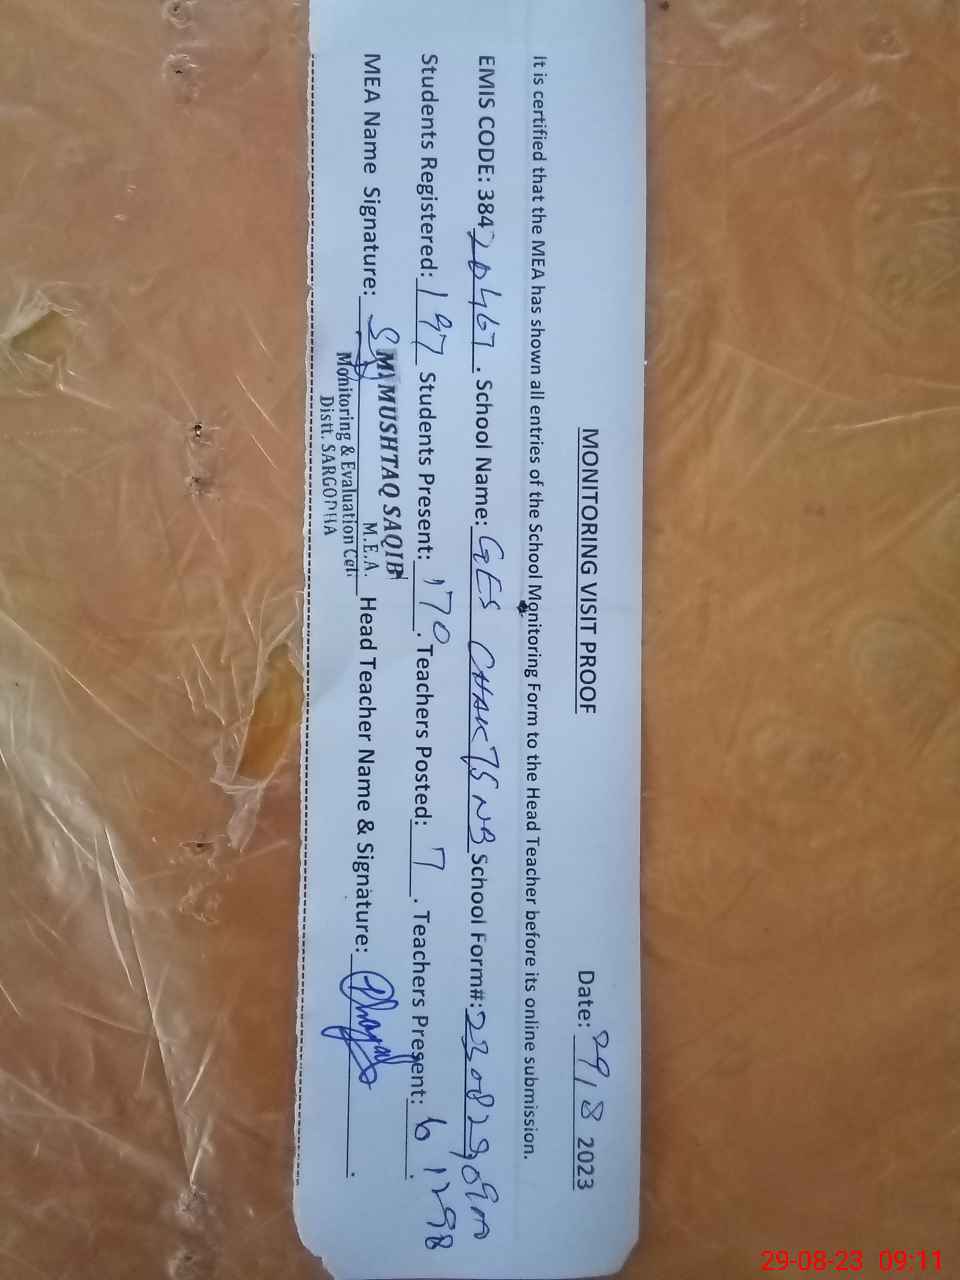 MONITORING VISIT PROOF
Date: 29/8 2023
It is certified that the MEA has shown all entries of the School Monitoring Form to the Head Teacher before its online submission.
EMIS CODE: 384 20467. School Name: GES CHAK 75 NB School Form#: 2308290900
Students Registered: 197 Students Present: 170. Teachers Posted: 7. Teachers Present: 6.
MEA Name Signature: MUSHTAQ SAQIB Head Teacher Name & Signature:
M.E.A.
Monitoring & Evaluation Cell
Distt. SARGODHA
29-08-23 09:11